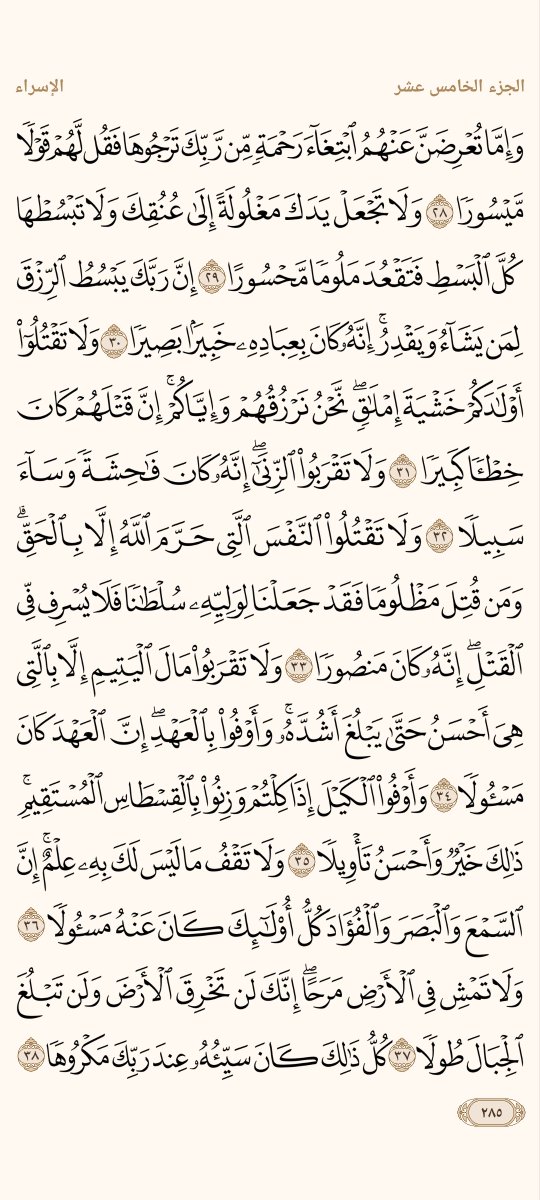 الجزء الخامس عشر
الإسراء
وَإِمَّا تُعْرِضَنَّ عَنْهُمُ ٱبْتِغَآءَ رَحْمَةٍ مِّن رَّبِّكَ تَرْجُوهَا فَقُل لَّهُمْ قَوْلًا
مَّيْسُورًا ٢٨ وَلَا تَجْعَلْ يَدَكَ مَغْلُولَةً إِلَىٰ عُنُقِكَ وَلَا تَبْسُطْهَا
كُلَّ ٱلْبَسْطِ فَتَقْعُدَ مَلُومًا مَّحْسُورًا ٢٩ إِنَّ رَبَّكَ يَبْسُطُ ٱلرِّزْقَ
لِمَن يَشَآءُ وَيَقْدِرُ ۚ إِنَّهُۥ كَانَ بِعِبَادِهِۦ خَبِيرًۢا بَصِيرًا ٣٠ وَلَا تَقْتُلُوٓا۟
أَوْلَٰدَكُمْ خَشْيَةَ إِمْلَٰقٍ ۖ نَّحْنُ نَرْزُقُهُمْ وَإِيَّاكُمْ ۚ إِنَّ قَتْلَهُمْ كَانَ
خِطْـًٔا كَبِيرًا ٣١ وَلَا تَقْرَبُوا۟ ٱلزِّنَىٰٓ ۖ إِنَّهُۥ كَانَ فَٰحِشَةً وَسَآءَ
سَبِيلًا ٣٢ وَلَا تَقْتُلُوا۟ ٱلنَّفْسَ ٱلَّتِى حَرَّمَ ٱللَّهُ إِلَّا بِٱلْحَقِّ ۗ
وَمَن قُتِلَ مَظْلُومًا فَقَدْ جَعَلْنَا لِوَلِيِّهِۦ سُلْطَٰنًا فَلَا يُسْرِف فِّى
ٱلْقَتْلِ ۖ إِنَّهُۥ كَانَ مَنصُورًا ٣٣ وَلَا تَقْرَبُوا۟ مَالَ ٱلْيَتِيمِ إِلَّا بِٱلَّتِى
هِىَ أَحْسَنُ حَتَّىٰ يَبْلُغَ أَشُدَّهُۥ ۚ وَأَوْفُوا۟ بِٱلْعَهْدِ ۖ إِنَّ ٱلْعَهْدَ كَانَ
مَسْـُٔولًا ٣٤ وَأَوْفُوا۟ ٱلْكَيْلَ إِذَا كِلْتُمْ وَزِنُوا۟ بِٱلْقِسْطَاسِ ٱلْمُسْتَقِيمِ ۚ
ذَٰلِكَ خَيْرٌ وَأَحْسَنُ تَأْوِيلًا ٣٥ وَلَا تَقْفُ مَا لَيْسَ لَكَ بِهِۦ عِلْمٌ ۚ إِنَّ
ٱلسَّمْعَ وَٱلْبَصَرَ وَٱلْفُؤَادَ كُلُّ أُو۟لَٰٓئِكَ كَانَ عَنْهُ مَسْـُٔولًا ٣٦
وَلَا تَمْشِ فِى ٱلْأَرْضِ مَرَحًا ۖ إِنَّكَ لَن تَخْرِقَ ٱلْأَرْضَ وَلَن تَبْلُغَ
ٱلْجِبَالَ طُولًا ٣٧ كُلُّ ذَٰلِكَ كَانَ سَيِّئُهُۥ عِندَ رَبِّكَ مَكْرُوهًا ٣٨
٢٨٥